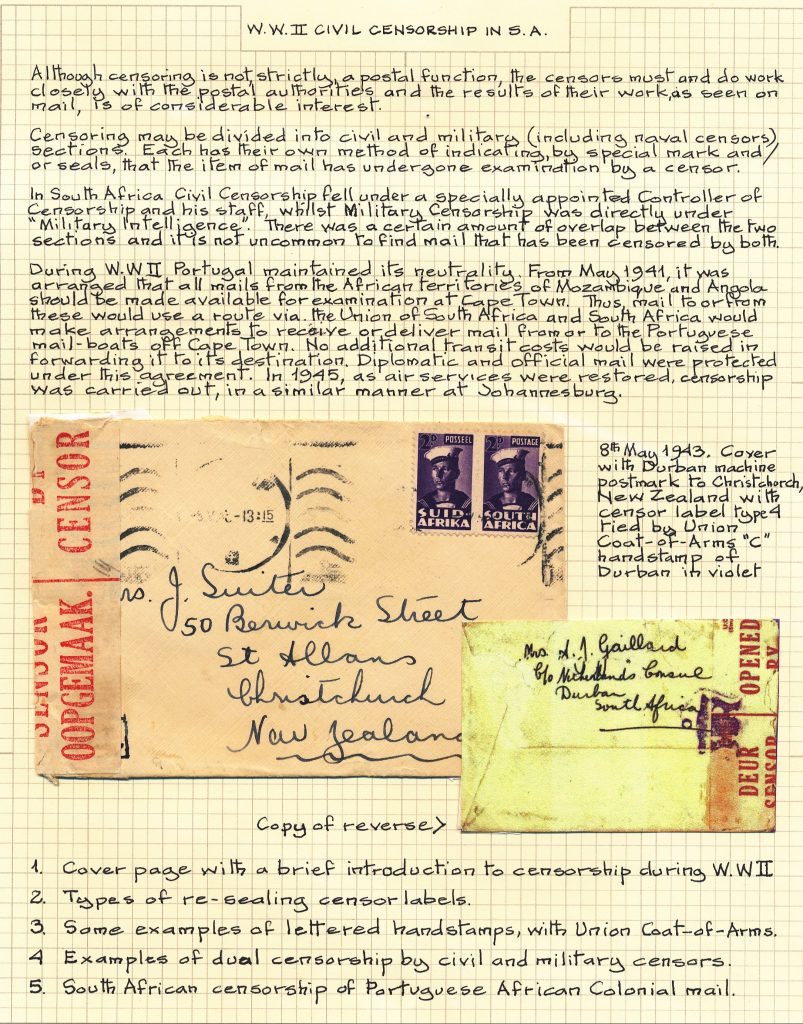 W.W.II CIVIL CENSORSHIP IN S.A.
Although censoring is not, strictly, a postal function, the censors must and do work
closely with the postal authorities and the results of their work, as seen on
mail, is of considerable interest.
Censoring may be divided into civil and military (including naval censors)
sections. Each has their own method of indicating, by special mark and/
or seals, that the item of mail has undergone examination by a censor.
In South Africa Civil Censorship fell under a specially appointed Controller of
Censorship and his staff, whilst Military Censorship was directly under
"Military Intelligence". There was a certain amount of overlap between the two
sections and it is not uncommon to find mail that has been censored by both.
During W.W II Portugal maintained its neutrality. From May 1941, it was
arranged that all mails from the African territories of Mozambique and Angola
should be made available for examination at Cape Town. Thus, mail to or from
these would use a route via. the Union of South Africa and South Africa would
make arrangements to receive or deliver mail from or to the Portuguese
mail-boats off Cape Town. No additional transit costs would be raised in
forwarding it to its destination. Diplomatic and official mail were protected
under this agreement. In 1945, as air services were restored, censorship
was carried out, in a similar manner at Johannesburg.
8th May 1943. Cover
with Durban machine
postmark to Christchurch,
New Zealand with
censor label type 4
tied by Union
Coat-of-Arms "C"
handstamp of
Durban in violet
CENSOR
SENSOR
OOPGEMAAK.
13:15
2D POSSEEL
SUID-AFRIKA
2D POSTAGE
SOUTH AFRICA
rs. J. Suiter
50 Berwick Street
St Albans
Christchurch
New Zealand
Mrs A. J. Gaillard
C/o Netherlands Consul
Durban
South Africa
OPENED BY
DEUR SENSOR
Copy of reverse>
1. Cover page with a brief introduction to censorship during W.WII
2. Types of re-sealing censor labels.
3. Some examples of lettered handstamps, with Union Coat-of-Arms.
4 Examples of dual censorship by civil and military censors.
5. South African censorship of Portuguese African Colonial mail.